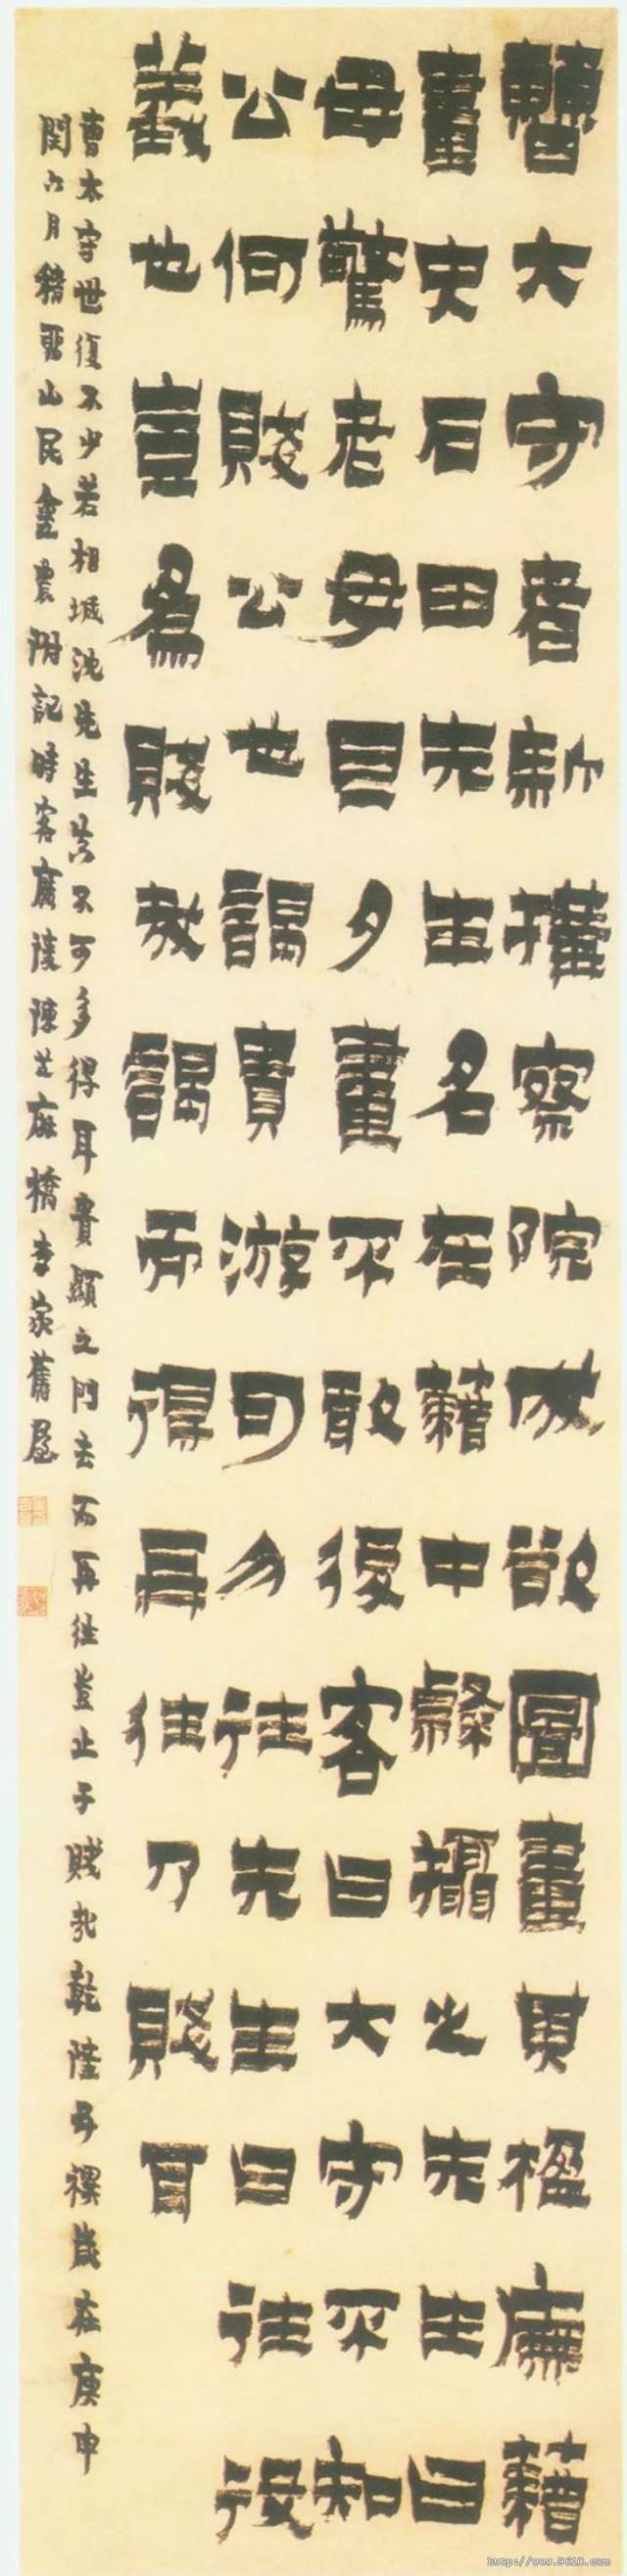 曹大守者新搆察院成欲圖畫其楹廡藉
畫史石田先生名在藉中隸攝之先生曰
毋驚老母旦夕畫不敢後客曰大守不知
公何賤公也謁貴游可勿往先生曰往役
義也豈為賤哉謁而得再往乃賤耳
曹太守世復不少若相城沈先生真不可多得耳貴顯之門去而再往豈止于賤哉乾隆五禩歲在庚申
閏六月稽留山民金農附記時客廣陵陳芝麻橋李家舊屋
http://www.9610.com